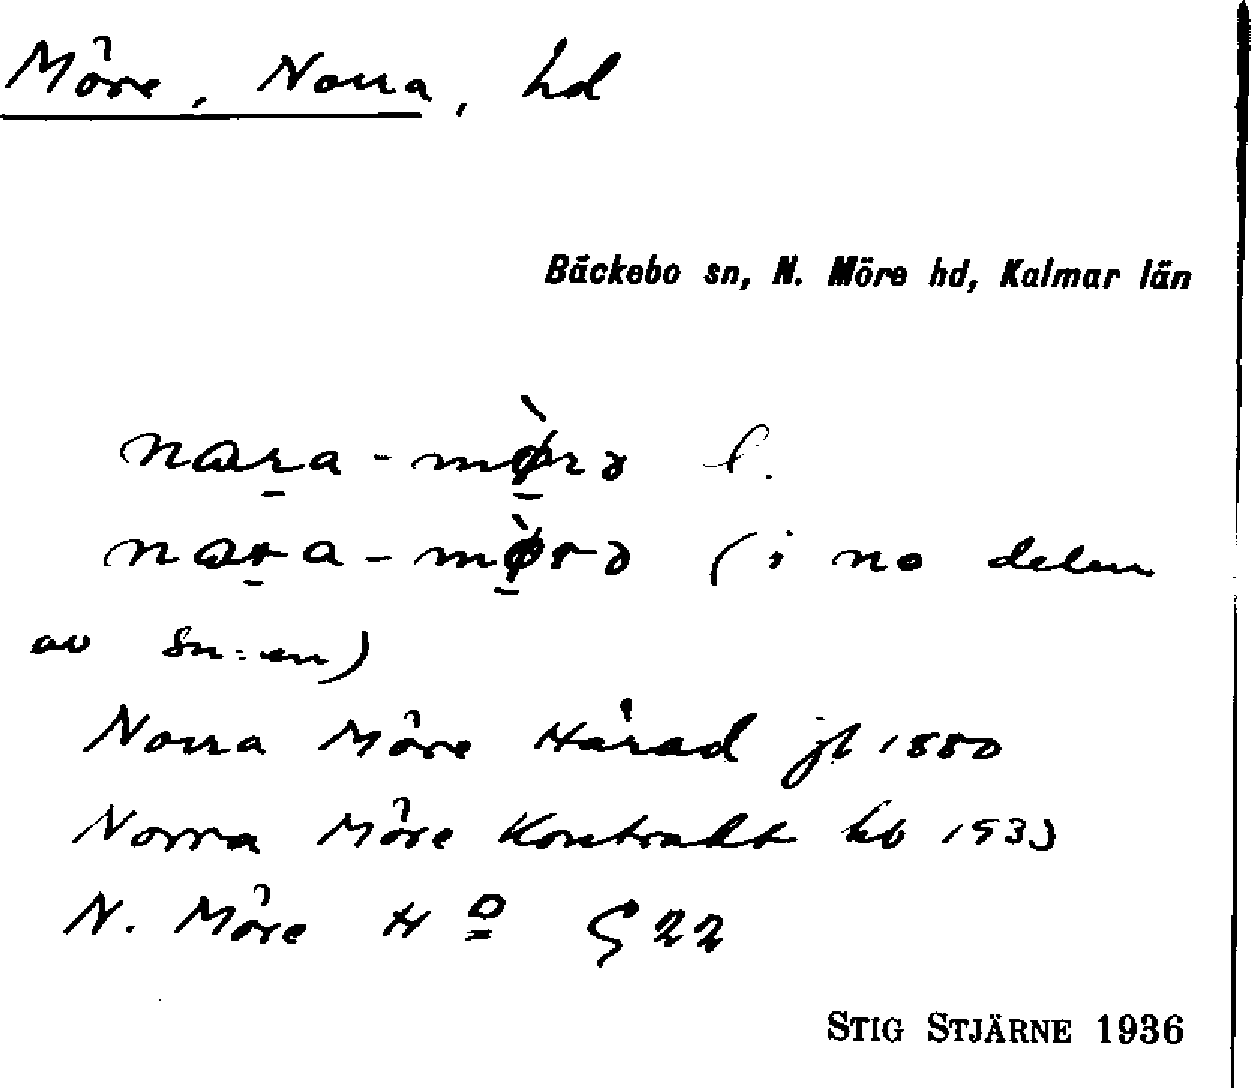 Möre, Norra, hd
Bäckebo sn, N. Möre hd, Kalmar län
nara-mø̀rə l.
nara-mø̀rə (i no delen
av sn:en)
Norra Möre Härad jb 1880
Norra Möre Kontrakt hb 1933
N. Möre H D G 22
STIG STJÄRNE 1936